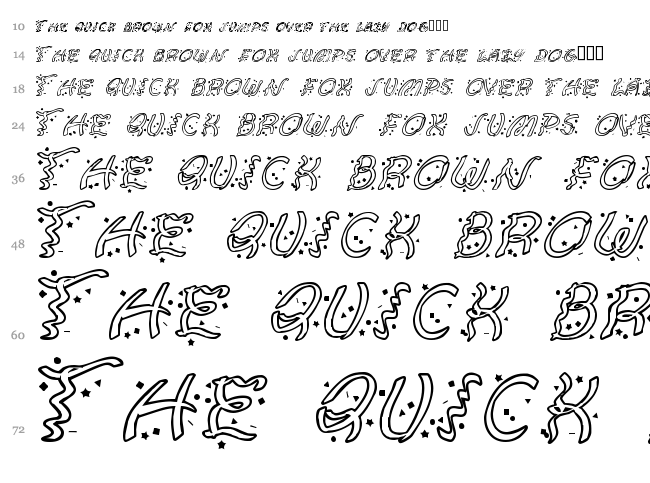 10 The quick brown fox jumps over the lazy dog
14 The quick brown fox jumps over the lazy dog
18 The quick brown fox jumps. over the la
24 The quick brown fox jumps. ove
36 The quick brown fo
48 The quick brow
60 The quick br
72 The quick